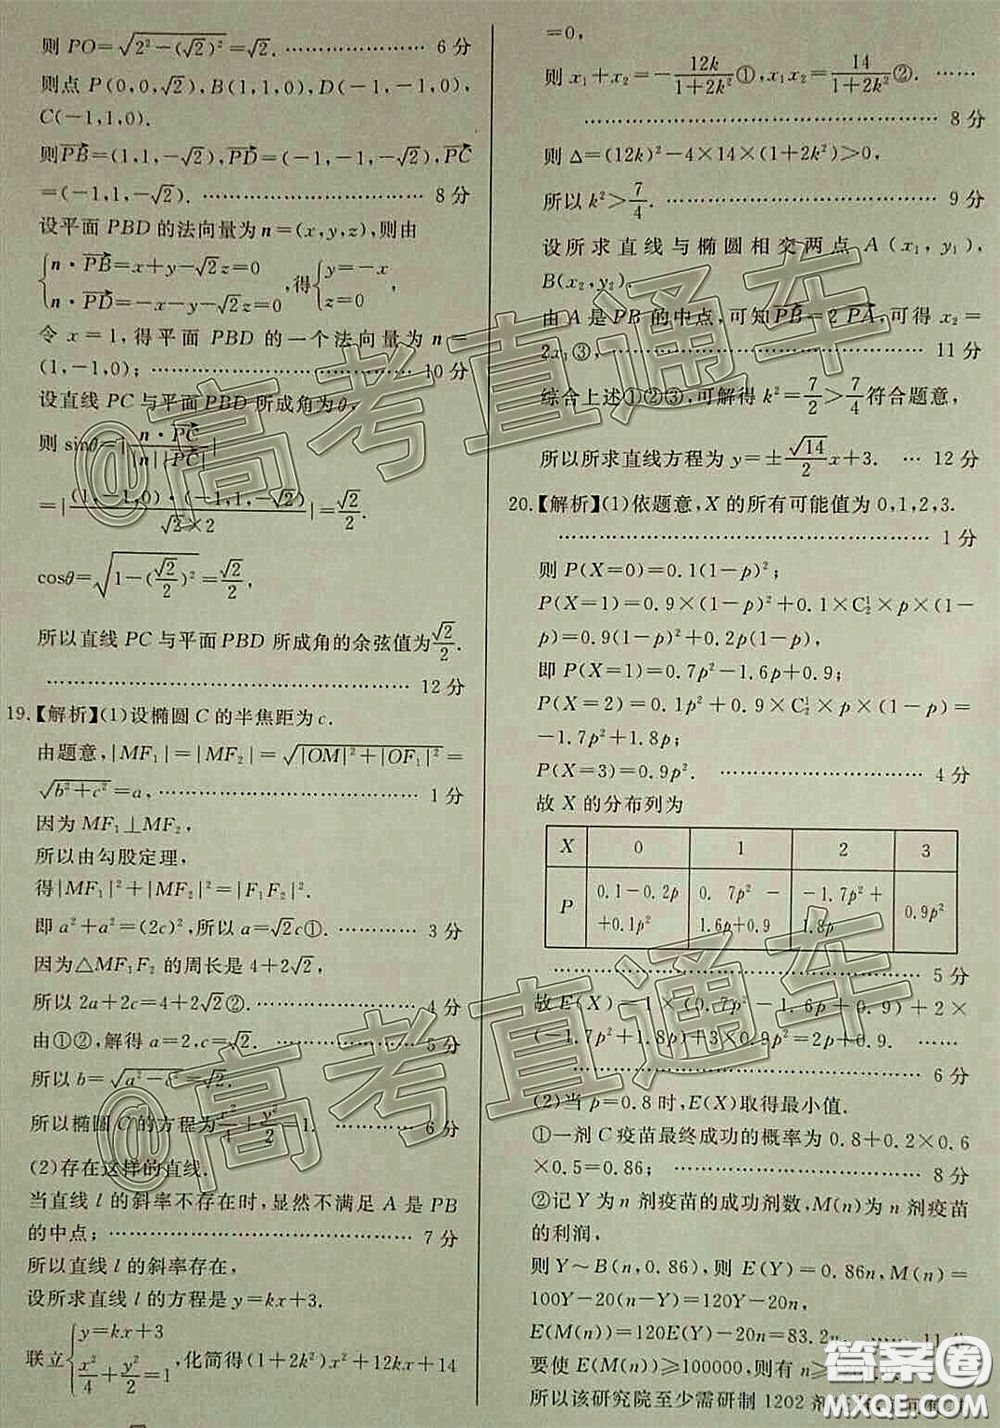 则 PO=√(2²-(√2)²)=√2. ………………… 6 分
则点 P(0,0,√2),B(1,1,0),D(-1,-1,0),
C(-1,1,0).
则PB→=(1,1,-√2),PD→=(-1,-1,-√2),PC→
=(-1,1,-√2). ………………………… 8 分
设平面 PBD 的法向量为 n=(x,y,z),则由
{n·PB→=x+y-√2z=0
n·PD→=-x-y-√2z=0 ,得{y=-x
z=0 ,
令 x=1,得平面 PBD 的一个法向量为 n=
(1,-1,0); ………………………… 10 分
设直线 PC 与平面 PBD 所成角为θ,
则 sinθ=|n·PC→/|n||PC→||
=|(1,-1,0)·(-1,1,-√2)/√2×2|=√2/2.
cosθ=√(1-(√2/2)²)=√2/2,
所以直线 PC 与平面 PBD 所成角的余弦值为√2/2.
……………………………………… 12 分
19.【解析】(1)设椭圆 C 的半焦距为 c.
由题意,|MF₁|=|MF₂|=√(|OM|²+|OF₁|²)=
√(b²+c²)=a, ………………………… 1 分
因为 MF₁⊥MF₂,
所以由勾股定理,
得|MF₁|²+|MF₂|²=|F₁F₂|².
即 a²+a²=(2c)²,所以 a=√2c①. ………… 3 分
因为△MF₁F₂ 的周长是 4+2√2,
所以 2a+2c=4+2√2②. ………………… 4 分
由①②,解得 a=2,c=√2. ……………… 5 分
所以 b=√(a²-c²)=√2.
所以椭圆 C 的方程为x²/4+y²/2=1. ………… 6 分
(2)存在这样的直线.
当直线 l 的斜率不存在时,显然不满足 A 是 PB
的中点; ……………………………… 7 分
所以直线 l 的斜率存在,
设所求直线 l 的方程是 y=kx+3.
联立{y=kx+3
x²/4+y²/2=1 ,化简得(1+2k²)x²+12kx+14
=0,
则 x₁+x₂=-12k/(1+2k²)①,x₁x₂=14/(1+2k²)②. ……
……………………………………… 8 分
则 Δ=(12k)²-4×14×(1+2k²)>0,
所以 k²>7/4. ……………………………… 9 分
设所求直线与椭圆相交两点 A(x₁,y₁),
B(x₂,y₂),
由 A 是 PB 的中点,可知PB→=2PA→,可得 x₂=
2x₁③, ………………………………… 11 分
综合上述①②③,可解得 k²=7/2>7/4符合题意,
所以所求直线方程为 y=±√14/2x+3. … 12 分
20.【解析】(1)依题意,X 的所有可能值为 0,1,2,3.
……………………………………… 1 分
则 P(X=0)=0.1(1-p)²;
P(X=1)=0.9×(1-p)²+0.1×C½×p×(1-
p)=0.7p²-1.6p+0.9,
即 P(X=1)=0.7p²-1.6p+0.9;
P(X=2)=0.1p²+0.9×C½×p×(1-p)=
-1.7p²+1.8p;
P(X=3)=0.9p². ………………………… 4 分
故 X 的分布列为
X 0 1 2 3
P 0.1-0.2p+0.1p² 0.7p²-1.6p+0.9 -1.7p²+1.8p 0.9p²
……………………………………… 5 分
故 E(X)=1×(0.7p²-1.6p+0.9)+2×
(-1.7p²+1.8p)+3×0.9p²=2p+0.9. ……
……………………………………… 6 分
(2)当 p=0.8 时,E(X)取得最小值.
①一剂 C 疫苗最终成功的概率为 0.8+0.2×0.6
×0.5=0.86; …………………………… 8 分
②记 Y 为 n 剂疫苗的成功剂数,M(n)为 n 剂疫苗
的利润,
则 Y~B(n,0.86),于是 E(Y)=0.86n,M(n)=
100Y-20(n-Y)=120Y-20n,
E(M(n))=120E(Y)-20n=83.2n, …… 11 分
要使 E(M(n))≥100000,则有 n≥
所以该研究院至少需研制 1202 剂
@高考直通车
@高考直通车
答案圈
MXQE.COM